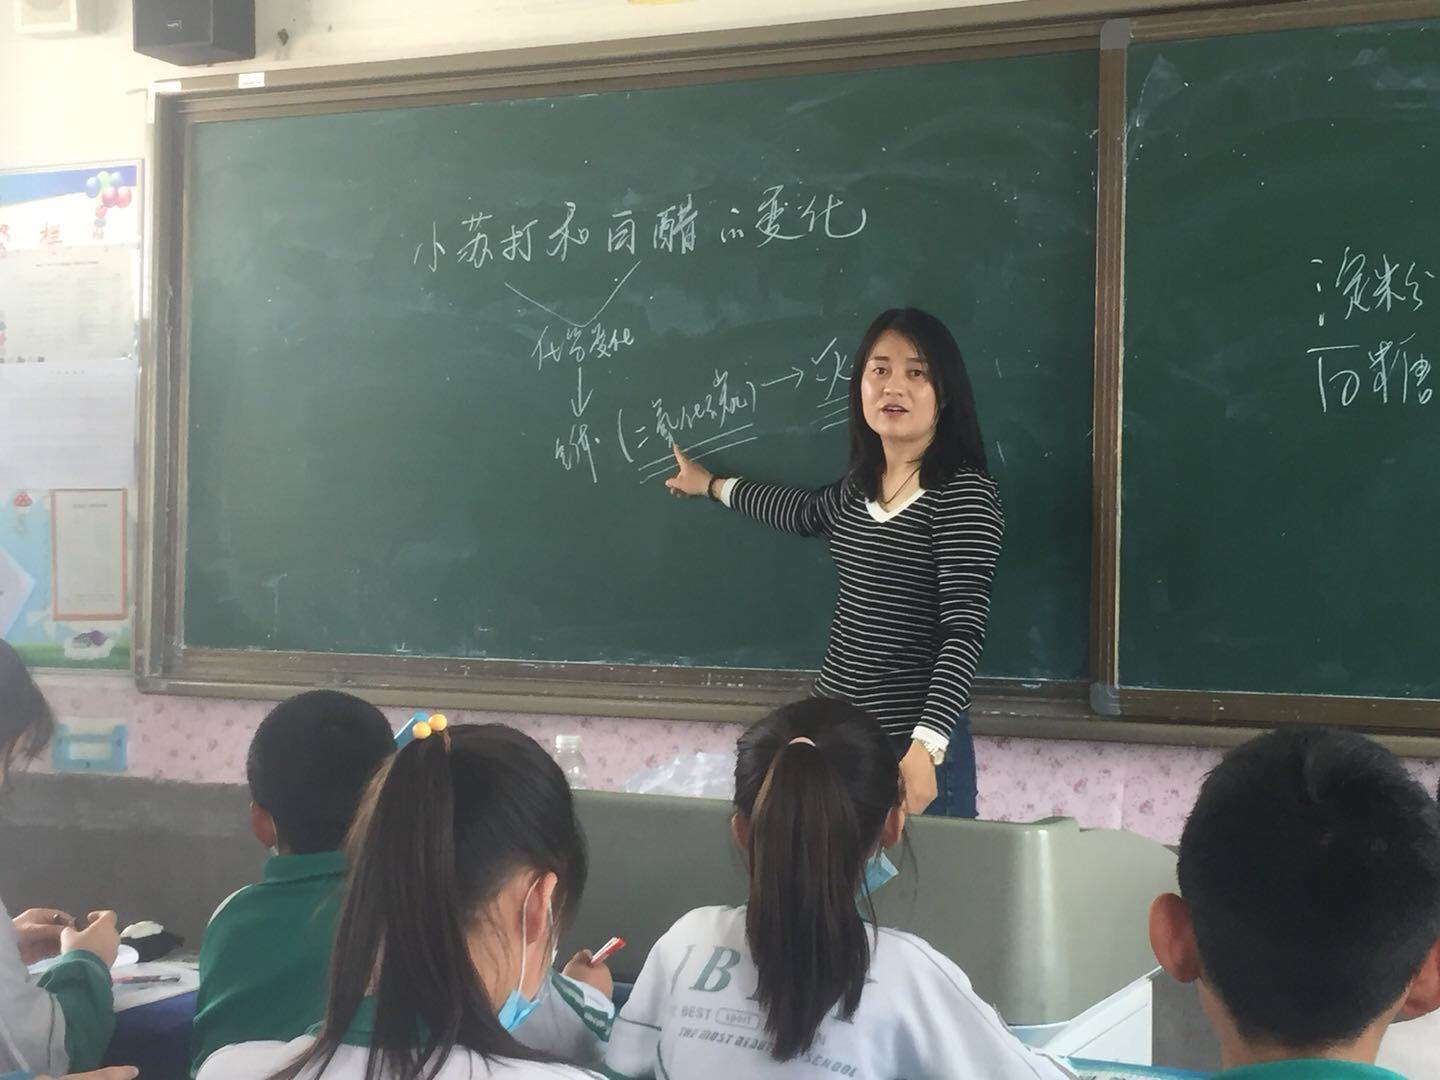 小苏打和白醋的变化
化学变化
↓
气体 (二氧化碳) → 灭
淀粉
白糖
栏
B
BEST sport
THE MOST BEAUT SCHOOL